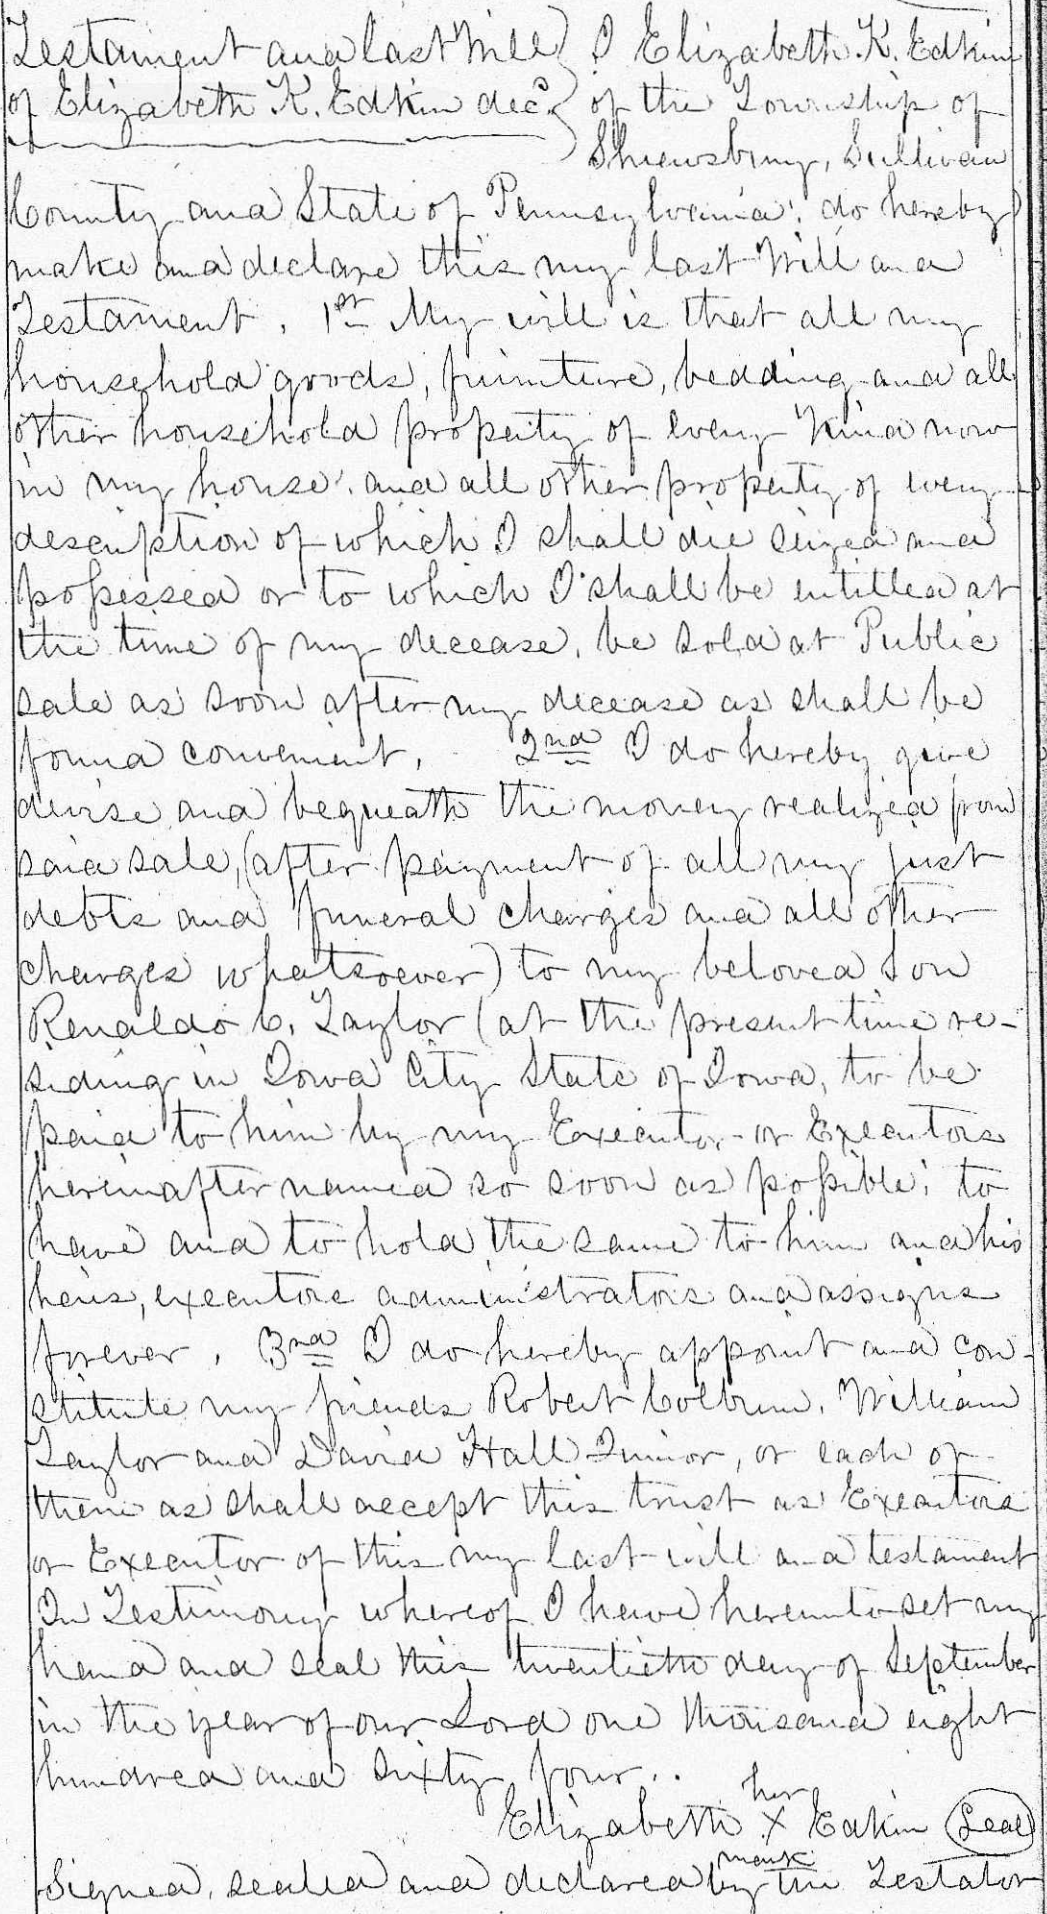 Testament and last Will } I Elizabeth K. Edkin
of Elizabeth K. Edkin decd. } of the Township of
Shrewsbury, Sullivan
County and State of Pennsylvania, do hereby
make and declare this my last Will and
Testament. 1st My will is that all my
household goods, furniture, bedding and all
other household property of every kind now
in my house, and all other property of every
description of which I shall die seized and
possessed or to which I shall be entitled at
the time of my decease, be sold at Public
sale as soon after my decease as shall be
found convenient. 2nd I do hereby give
devise and bequeath the money realized from
said sale, (after payment of all my just
debts and funeral charges and all other
charges whatsoever) to my beloved Son
Renaldo C. Taylor (at the present time re-
siding in Iowa City State of Iowa, to be
paid to him by my Executor or Executors
hereinafter named so soon as possible; to
have and to hold the same to him and his
heirs, executors administrators and assigns
forever. 3nd I do hereby appoint and con-
stitute my friends Robert Colbrun, William
Taylor and David Hall Junior, or each of
them as shall accept this trust as Executors
or Executor of this my last will and testament
In Testimony whereof I have hereunto set my
hand and seal this twentieth day of September
in the year of our Lord one thousand eight
hundred and sixty four..
her
Elizabeth X Edkin (Seal)
mark
Signed, sealed and declared by the Testator